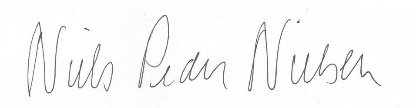 Niels Peder Nielsen